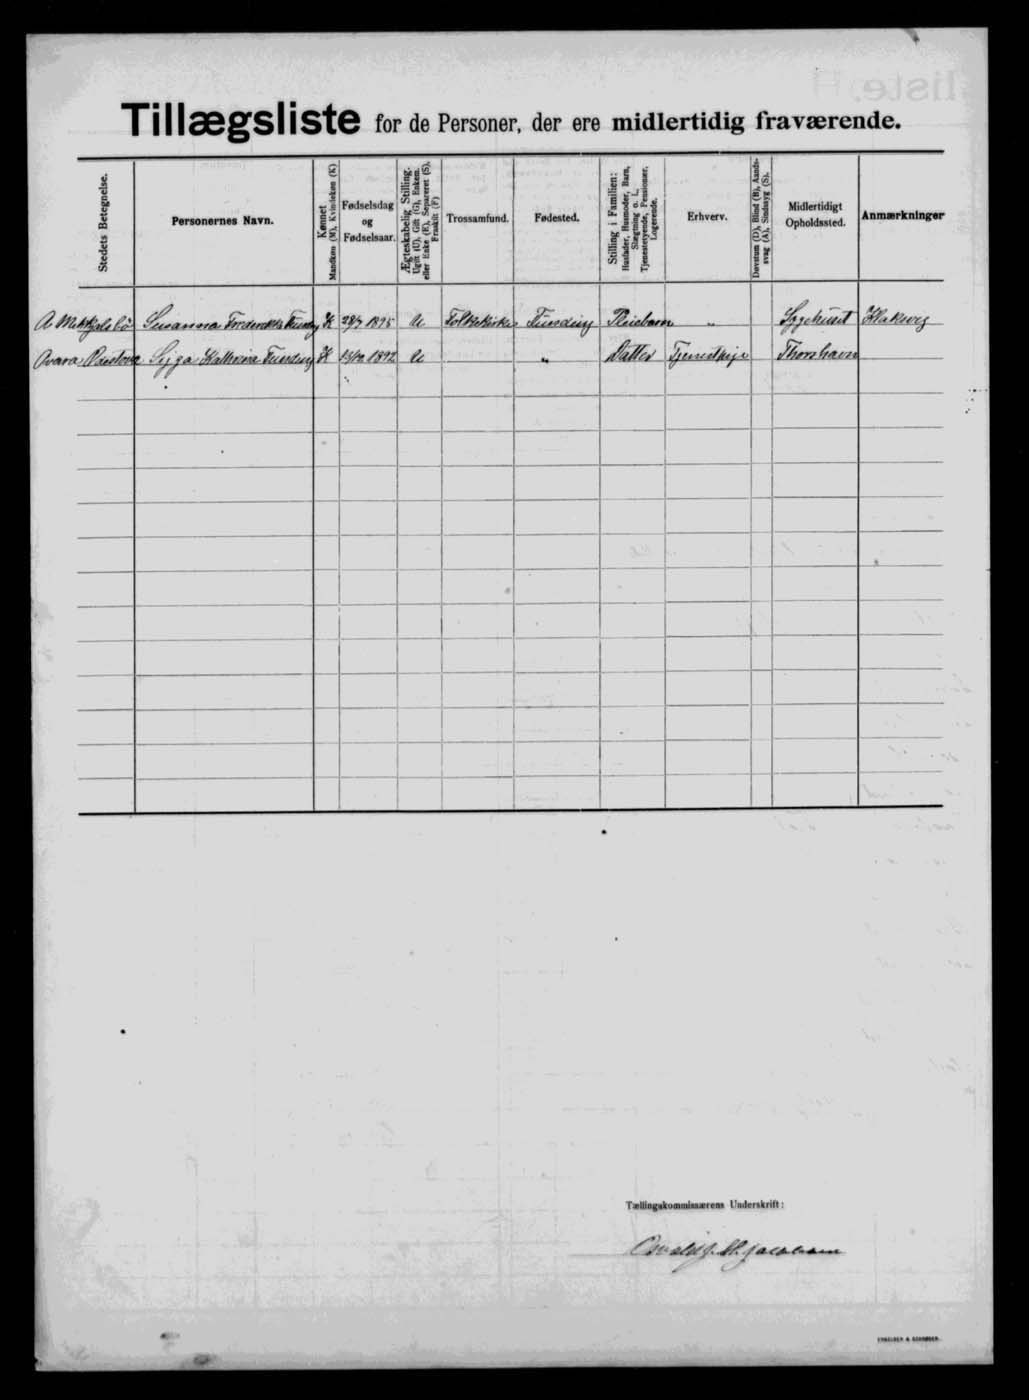 Tillægsliste for de Personer, der ere midlertidig fraværende.
Stedets Betegnelse.
Personernes Navn.
Kønnet
Mandkøn (M), Kvindekøn (K)
Fødselsdag
og
Fødselsaar.
Ægteskabelig Stilling.
Ugift (U), Gift (G), Enkem.
eller Enke (E), Separeret (S),
Fraskilt (F)
Trossamfund.
Fødested.
Stilling i Familien:
Husfader, Husmoder, Barn,
Slægtning o. l.,
Tjenestetyende, Pensionær,
Logerende.
Erhverv.
Døvstum (D), Blind (B), Aands-
svag (A), Sindssyg (S).
Midlertidigt
Opholdssted.
Anmærkninger
Susanna Frederikka Funding K 28/7 1895 U Folkekirke Funding Pleiebarn „ Sygehuset Klaksvig
Kathrina Funding K 1892 U „ Datter Tjenestpige Thorshavn
Tællingskommissærens Underskrift:
Jacobsen